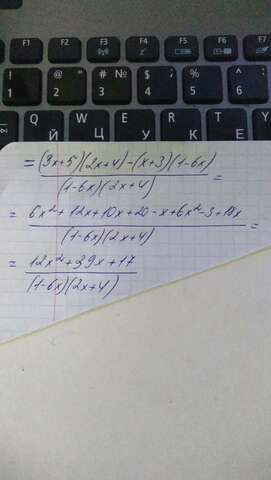 F1 F2 F3 F4 F5 F6 F7
! 1 @ " 2 # № 3 $ ; 4 % 5 ^ : 6
Й
= (3x+5)(2x+4)-(x+3)(1-6x) / (1-6x)(2x+4) =
= 6x²+12x+10x+20-x+6x²-3+18x / (1-6x)(2x+4) =
= 12x²+39x+17 / (1-6x)(2x+4)